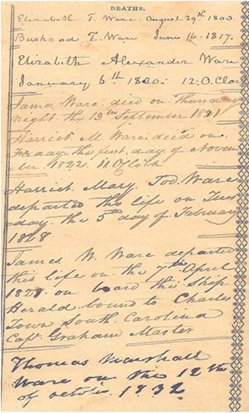 DEATHS.
Elizabeth T. Ware. August 29th 1803.
Bushrod T. Ware June 14. 1817.
Elizabeth Alexander Ware
January 6th 1820. 12.O.Clo
James Ware died on Thursday
night the 13th September 1821
Harriet M Ware died on
day the first day of Novem
ber 1822 11 O'Clock
Harriet Mary Tod Ware
departed this life on Tues
day the 5th day of February
1828
James W. Ware departed
this life on the 7th April
1828 on board the Ship
Herald bound to Charles
Town South Carolina
Capt Graham Master
Thomas Marshall
Ware on the 12th
of octobr 1832